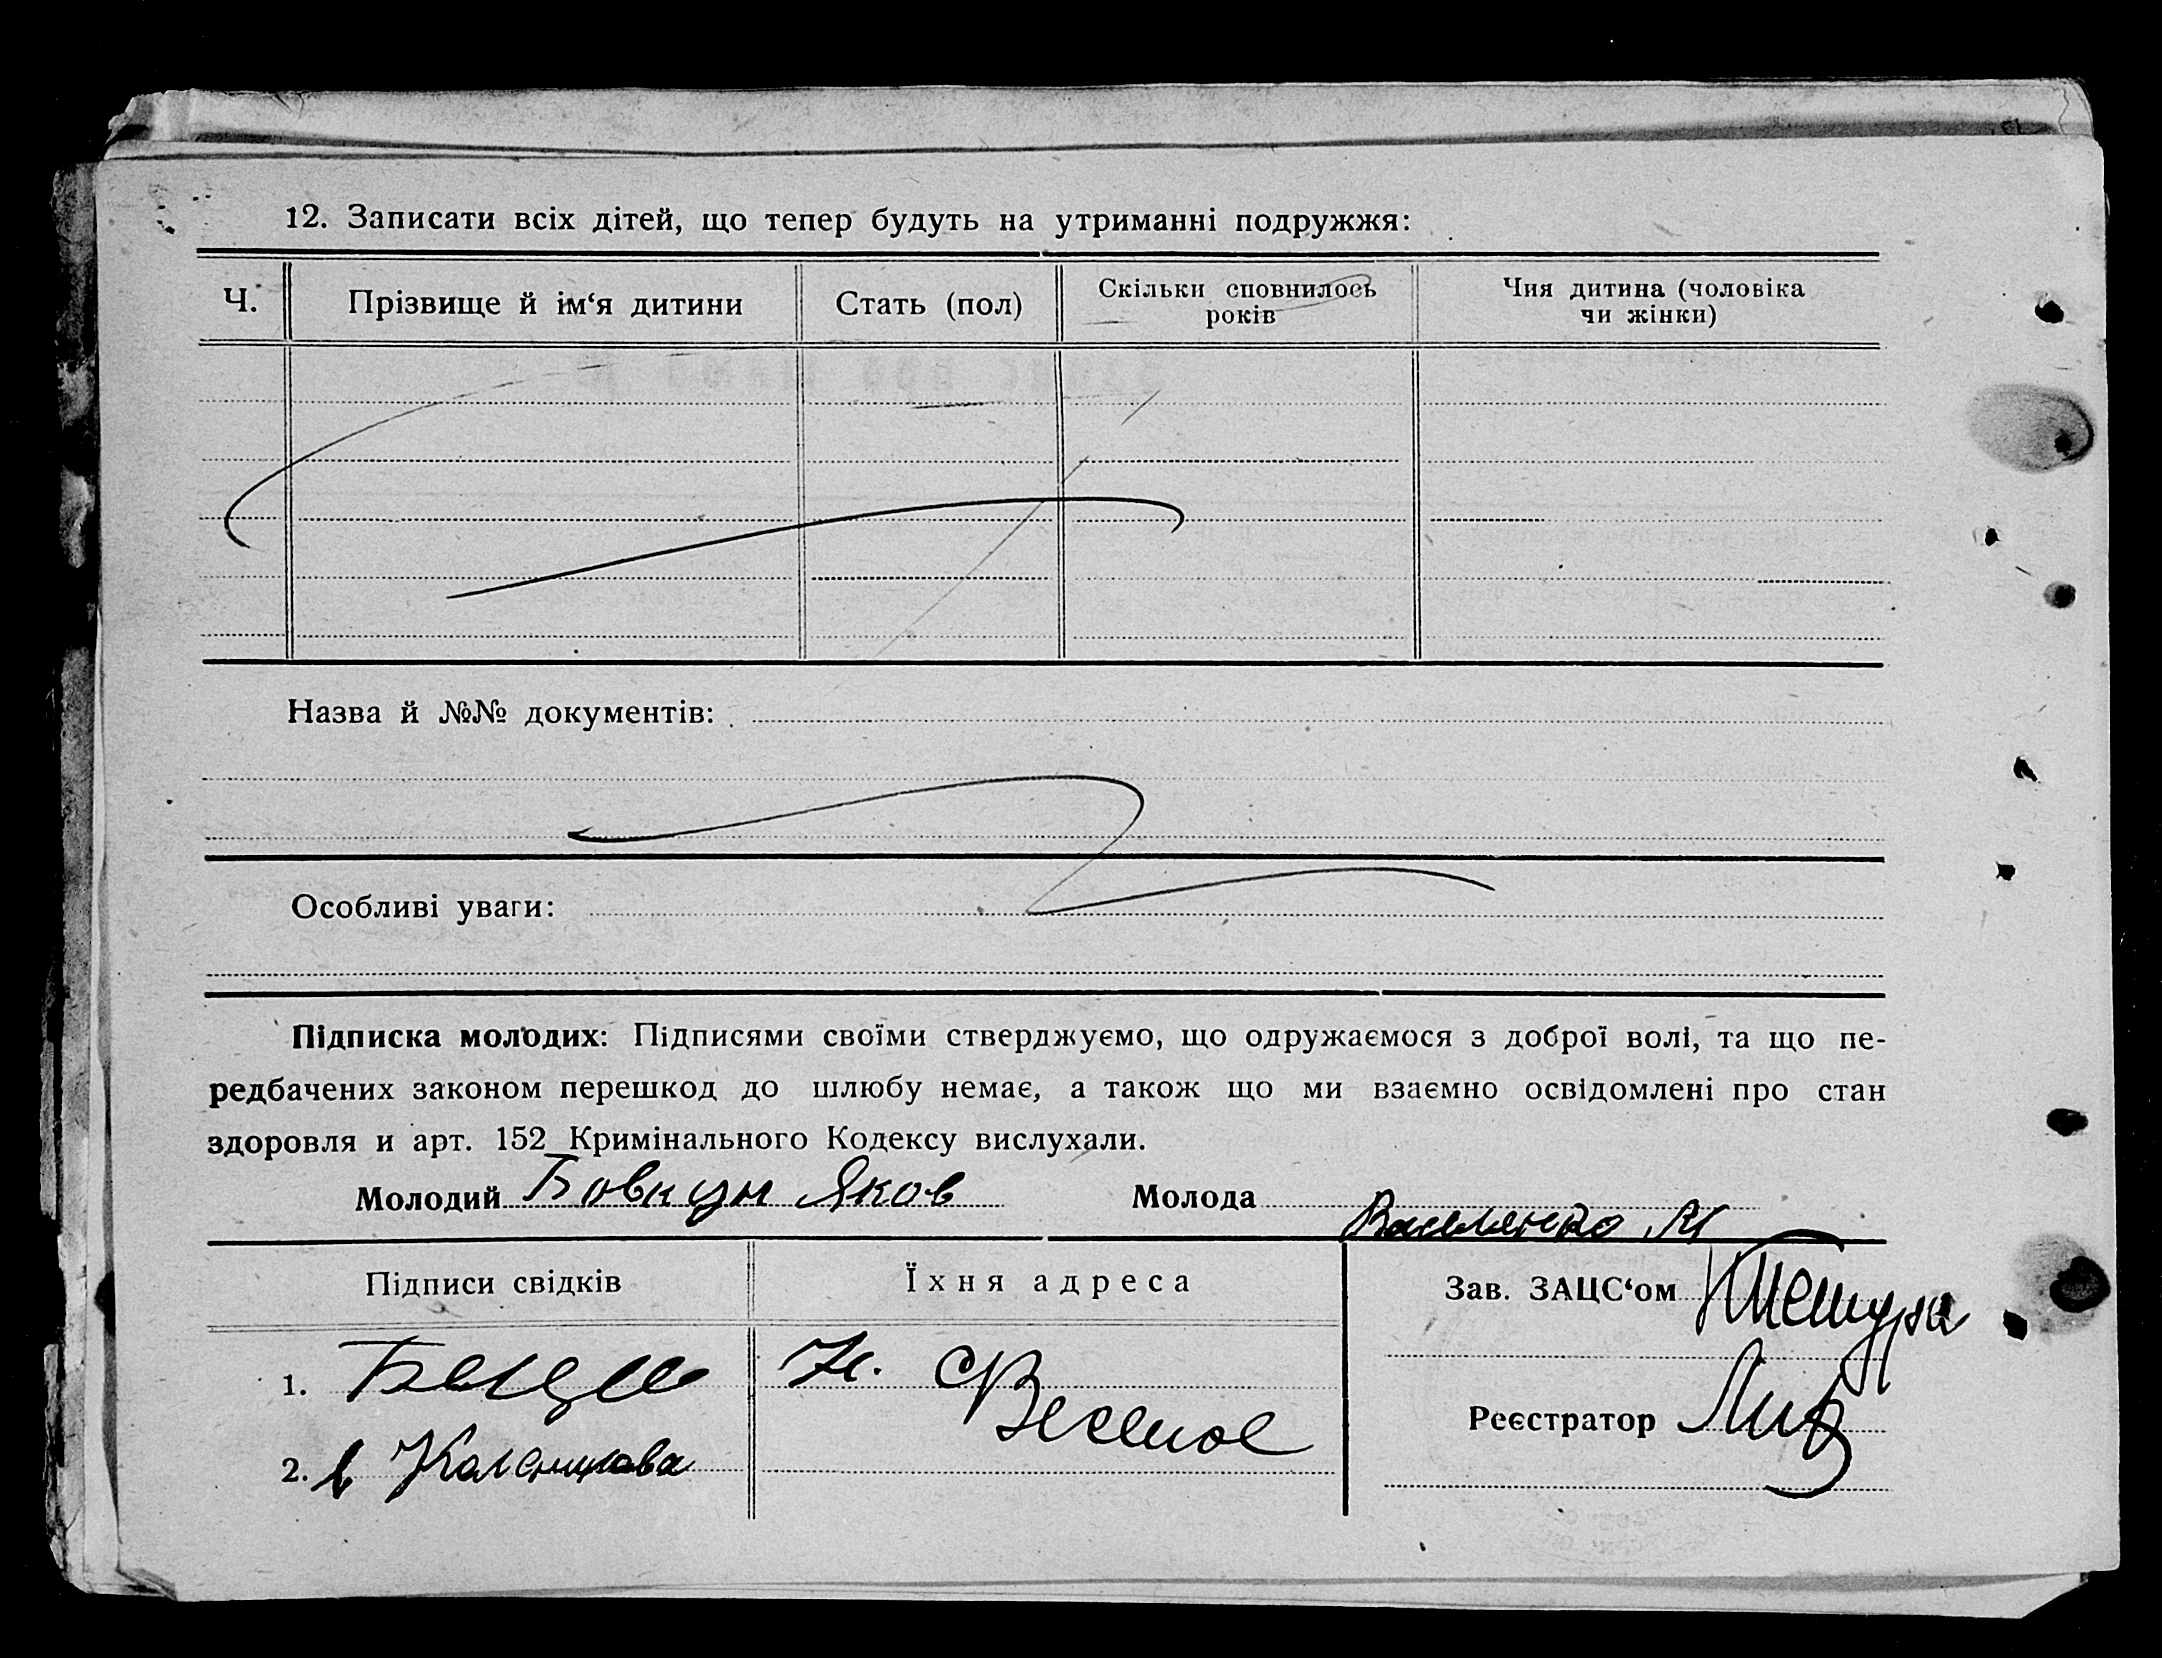 12. Записати всіх дітей, що тепер будуть на утриманні подружжя:
Ч. Прізвище й ім‘я дитини Стать (пол) Скільки сповнилось років Чия дитина (чоловіка чи жінки)
Назва й №№ документів:
Особливі уваги:
Підписка молодих: Підписями своїми стверджуємо, що одружаємося з доброї волі, та що пе-
редбачених законом перешкод до шлюбу немає, а також що ми взаємно освідомлені про стан
здоровля и арт. 152 Кримінального Кодексу вислухали.
Молодий Бовкун Яков Молода Василенко М
Підписи свідків Їхня адреса Зав. ЗАЦС‘ом
1. Н.
Реєстратор
2.